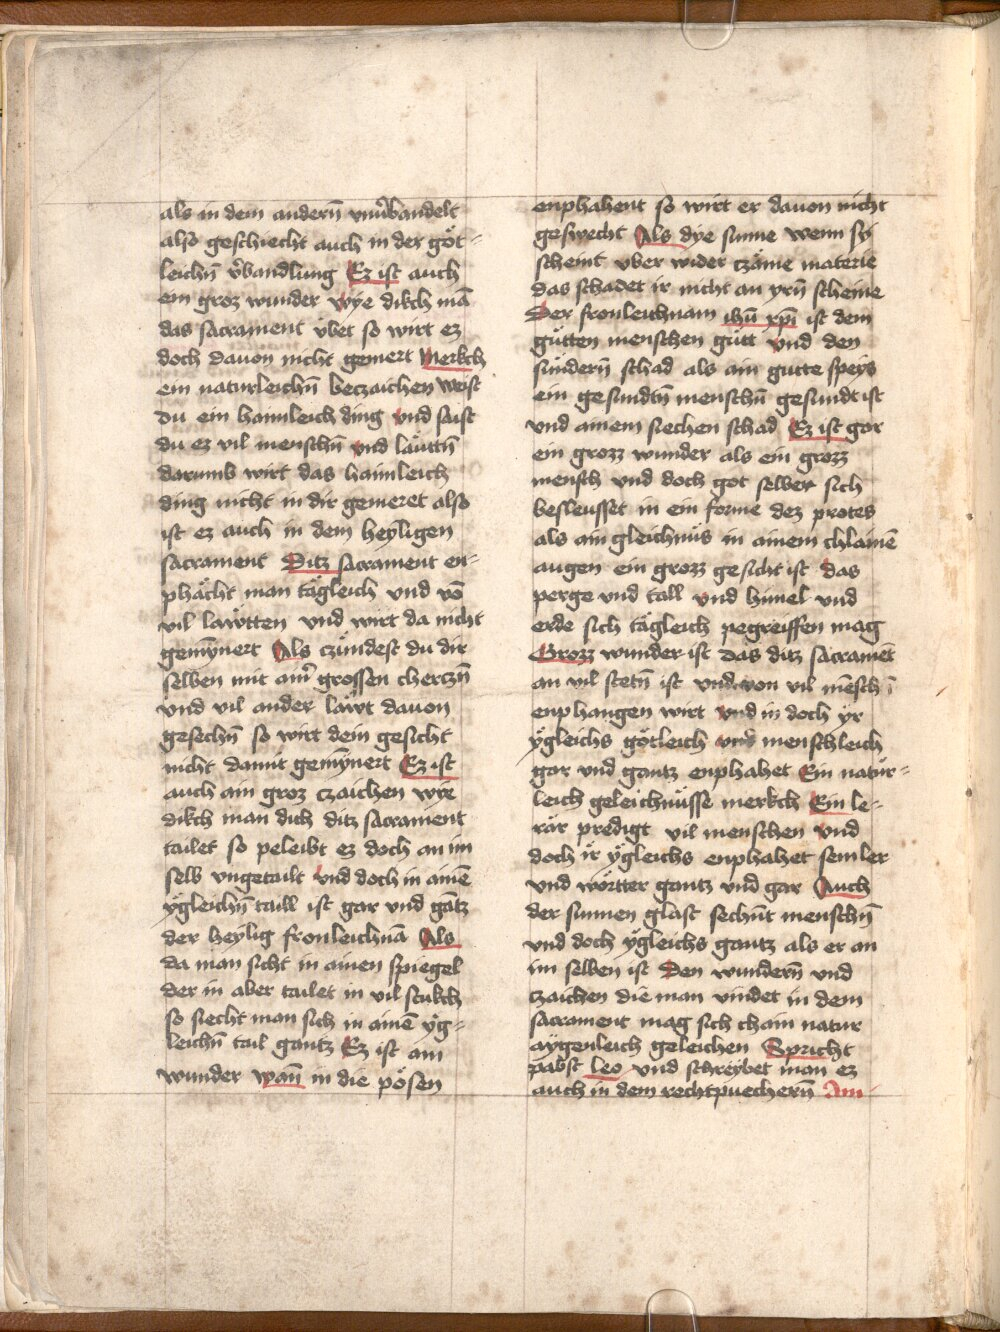 als in dem andern̄ vnuͦbandelt
also geschiecht auch in der goͤt-
leichn̄ v̾bandlung Ez ist auch
ein groz wunder wye dikch mā
das sacrament vͤbet so wirt ez
doch dauon nicht gemert Merkch
ein naturleichn̄ beczaichen weist
du ein haimleich ding vnd saist
du ez vil menschn̄ vnd laͤuttn̄
darumb wirt das haimleich
ding nicht in dir gemeret also
ist ez auch in dem heyligen
sacrament Ditz sacrament en-
phaͤcht man taͤgleich vnd vō
vil laẅtten vnd wirt da nicht
gemynnert Als czuͤndest du dir
selben mit aim̾ grossen cherczn̄
vnd vil ander laẅt dauon
gesechn̄ so wirt dein gesicht
nicht damit gemynnert Ez ist
auch ain groz czaichen wye
dikch man dich ditz sacrament
tailet so peleibt ez doch an im
selb vngetailt vnd doch in ainē
ygleichn̄ taill ist gar vnd gātz
der heylig fronleichnā Als
da man sicht in ainen spiegel
der in aber tailet in vil stukch
so siecht man sich in ainē yg-
leichn̄ tail gantz Ez ist ain
wunder wan̄ in die poͤsen
enphahent so wirt er dauon nicht
geswecht Als dye sunne wenn sy
scheint vber wider czaͤme materie
das schadet ir nicht an yrn̄ scheine
Der fronleichnam ihū xp̄i ist dem
guͤtten menschen guͤtt vnd den
sundern̄ schad als ain gutte speys
ein gesundtn̄ menschn̄ gesundt ist
vnd ainem siechen schad Ez ist gor
ein grozz wunder als ein grozz
mensch vnd doch got selber sich
besleusset in ein forme dez protes
als ain gleichnuͤs in ainem chlainē
augen ein grozz gesicht ist das
perge vnd tall vnd himel vnd
erde sich taͤgleich pegreiffen mag
Grozz wunder ist das ditz sacramēt
an vil stetn̄ ist vnd von vil mēschn̄
enphangen wirt vnd in doch yr
ygleichs goͤtleich vnd menschleich
gar vnd gantz enphahet Ein natuͤr-
leich geleichnuͤsse merkch Ein le-
rar predigt vil menschen vnd
doch ir ygleichs enphahet sein ler
vnd woͤrtter gantz vnd gar Auch
der sunnen glast sechnt menschn̄
vnd doch ygleichs gantz als er an
im selben ist Den wundern̄ vnd
czaichen die man vindet in dem
sacrament mag sich chain natur
aygenleich geleichen Spricht
pabst Leo vnd schreybet man ez
auch in dem rechtpuechern̄ Ain